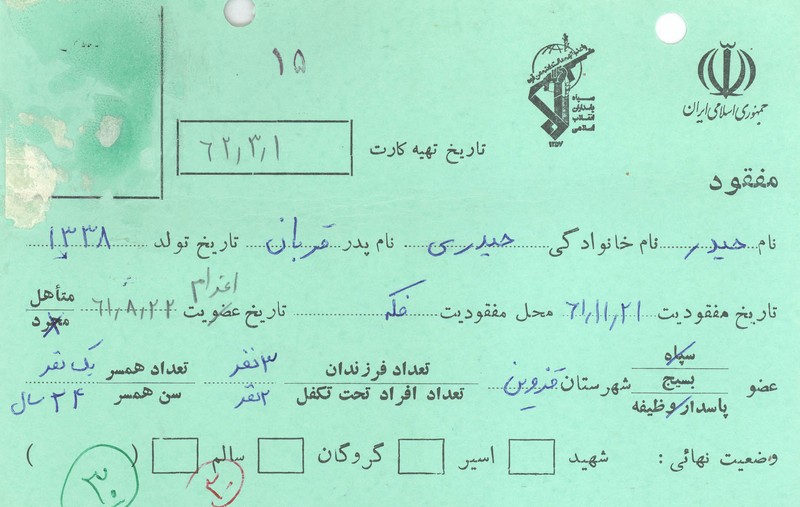 ۱۵
جمهوری اسلامی ایران
سپاه
پاسداران
انقلاب
اسلامی
۱۳۵۷
تاریخ تهیه کارت ۶۲/۳/۱
مفقود
نام حیدر نام خانوادگی حیدری نام پدر قربان تاریخ تولد ۱۳۳۸
تاریخ مفقودیت ۶۱/۱۱/۲۱ محل مفقودیت فکه تاریخ عضویت اعزام ۶۱/۸/۲۲ متأهل
مجرد
عضو سپاه بسیج پاسدار وظیفه شهرستان قزوین تعداد فرزندان ۳ نفر تعداد همسر یک نفر
تعداد افراد تحت تکفل ۲ نفر سن همسر ۲۴ سال
وضعیت نهائی : شهید اسیر گروگان سالم ( )
۳۰ ۳۰